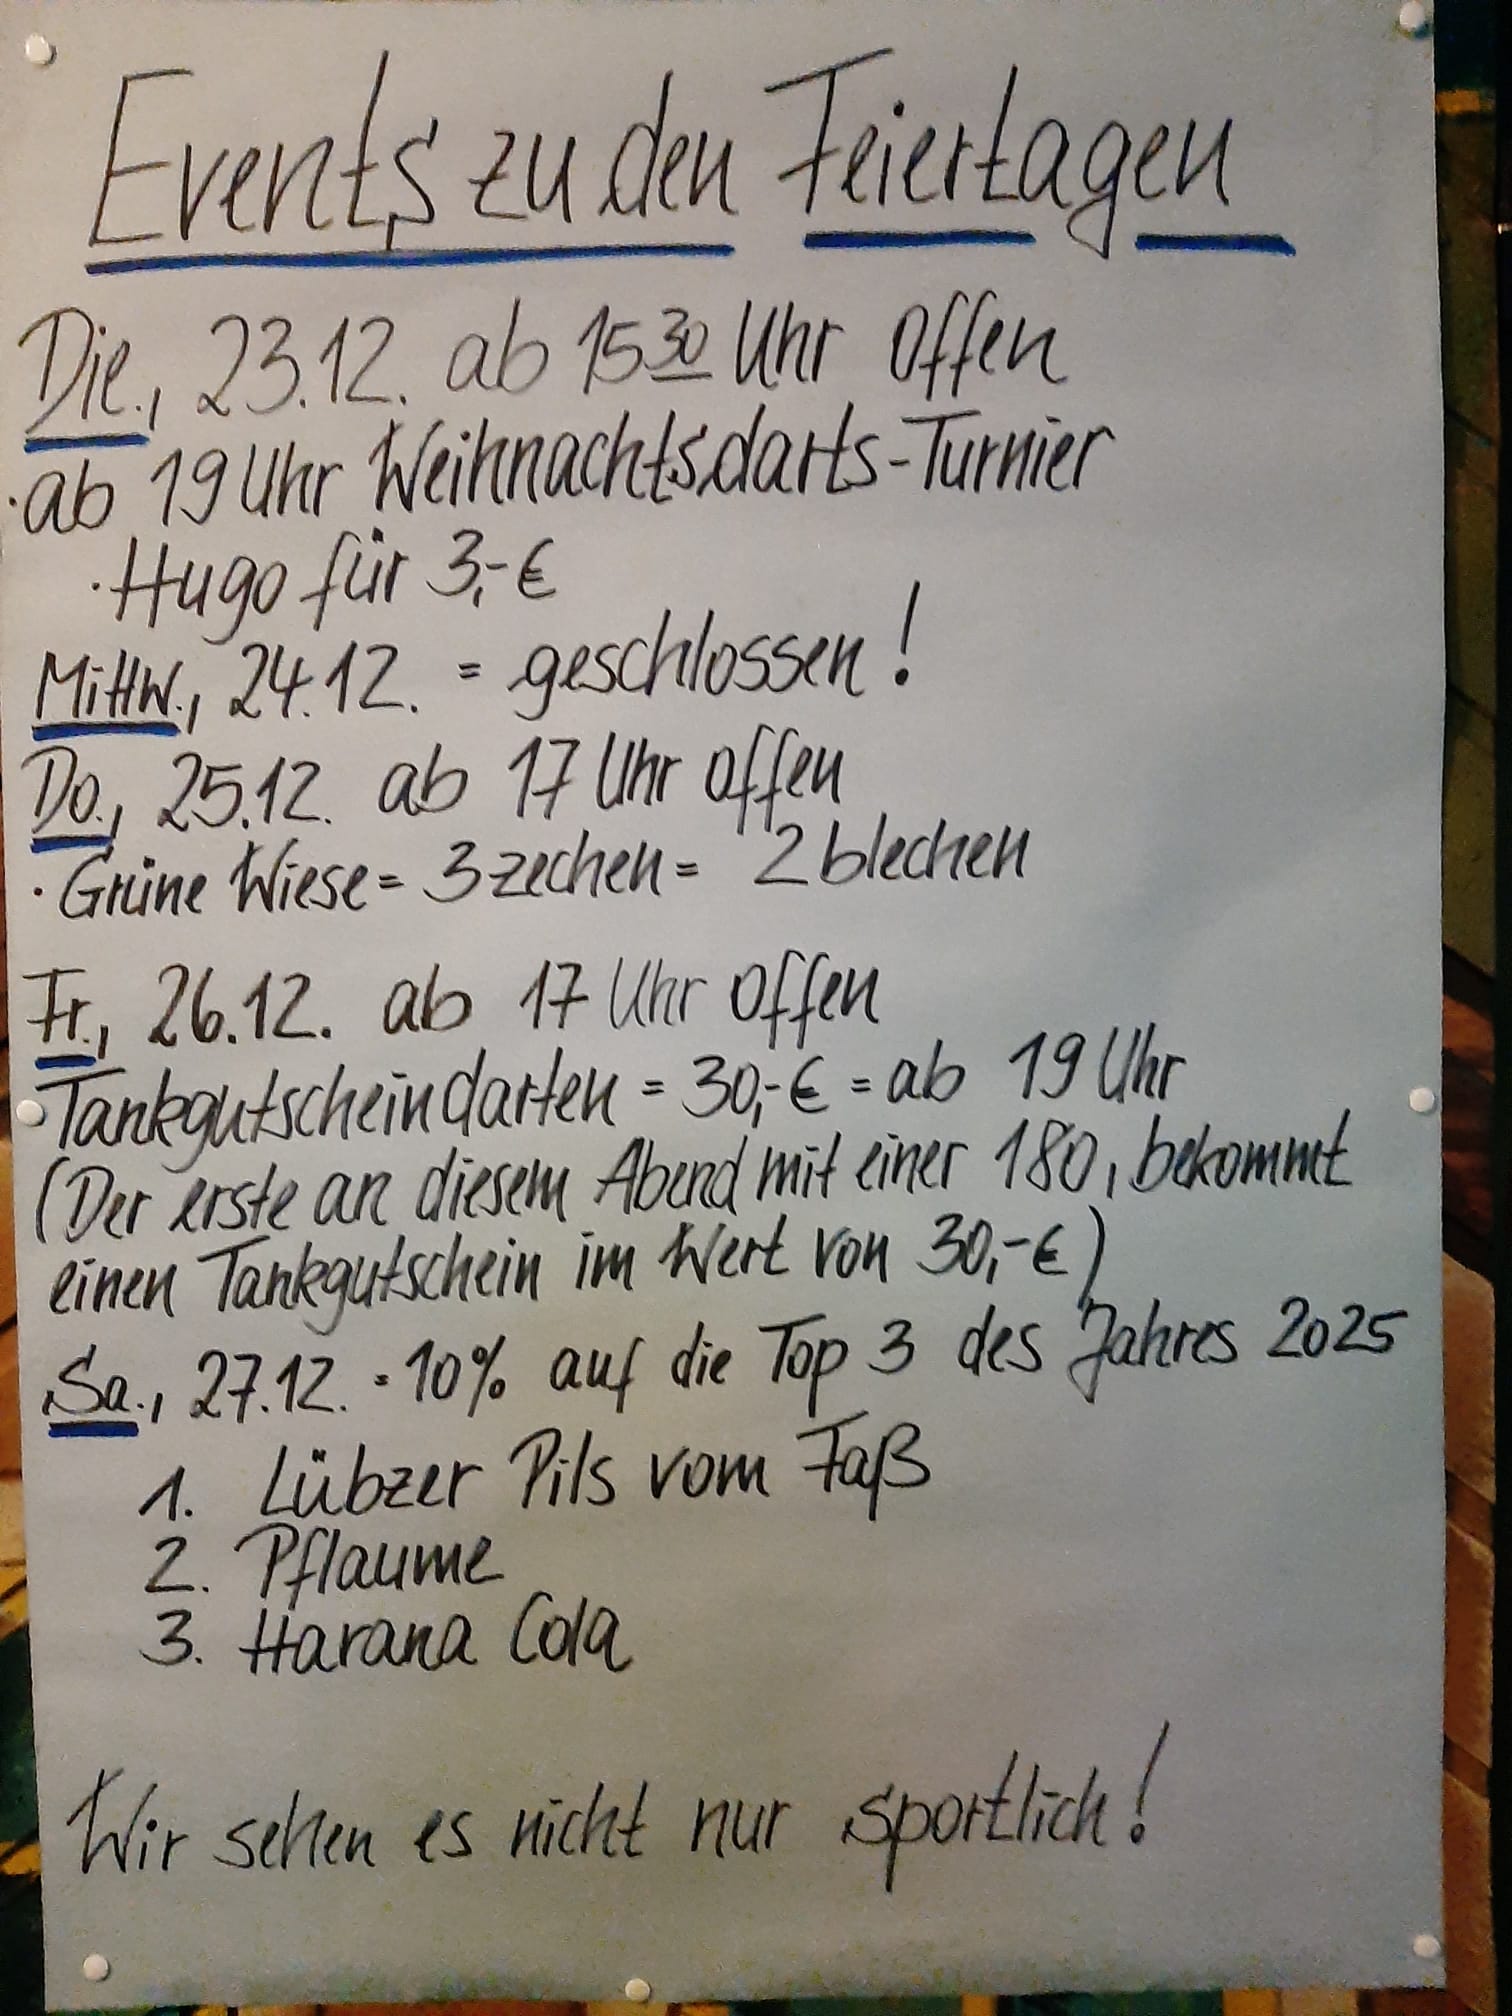 Events zu den Feiertagen
Die., 23.12. ab 15³⁰ Uhr offen
·ab 19 Uhr Weihnachtsdarts-Turnier
·Hugo für 3,-€
Mittw., 24.12. = geschlossen!
Do., 25.12. ab 17 Uhr offen
·Grüne Wiese = 3 zechen = 2 blechen
Fr., 26.12. ab 17 Uhr offen
Tankgutscheindarten = 30,-€ = ab 19 Uhr
(Der erste an diesem Abend mit einer 180, bekommt
einen Tankgutschein im Wert von 30,-€)
Sa., 27.12. · 10% auf die Top 3 des Jahres 2025
1. Lübzer Pils vom Faß
2. Pflaume
3. Harana Cola
Wir sehen es nicht nur sportlich!